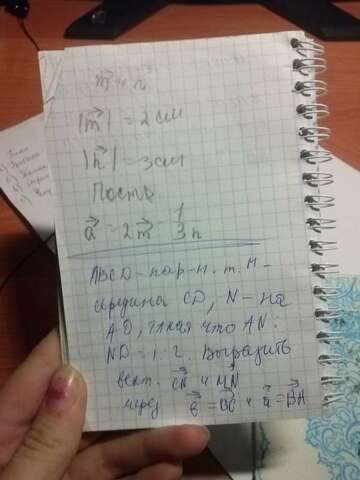 |m⃗| = 2 см
|n⃗| = 3 см
Постр.
a⃗ = 2m⃗ - 1/3 n
ABCD - пар-м. т. M -
середина CD, N - на
AD, такая что AN:
ND = 1:2. Выразить
вект. CN и MN
через в⃗ = BC и a⃗ = BA